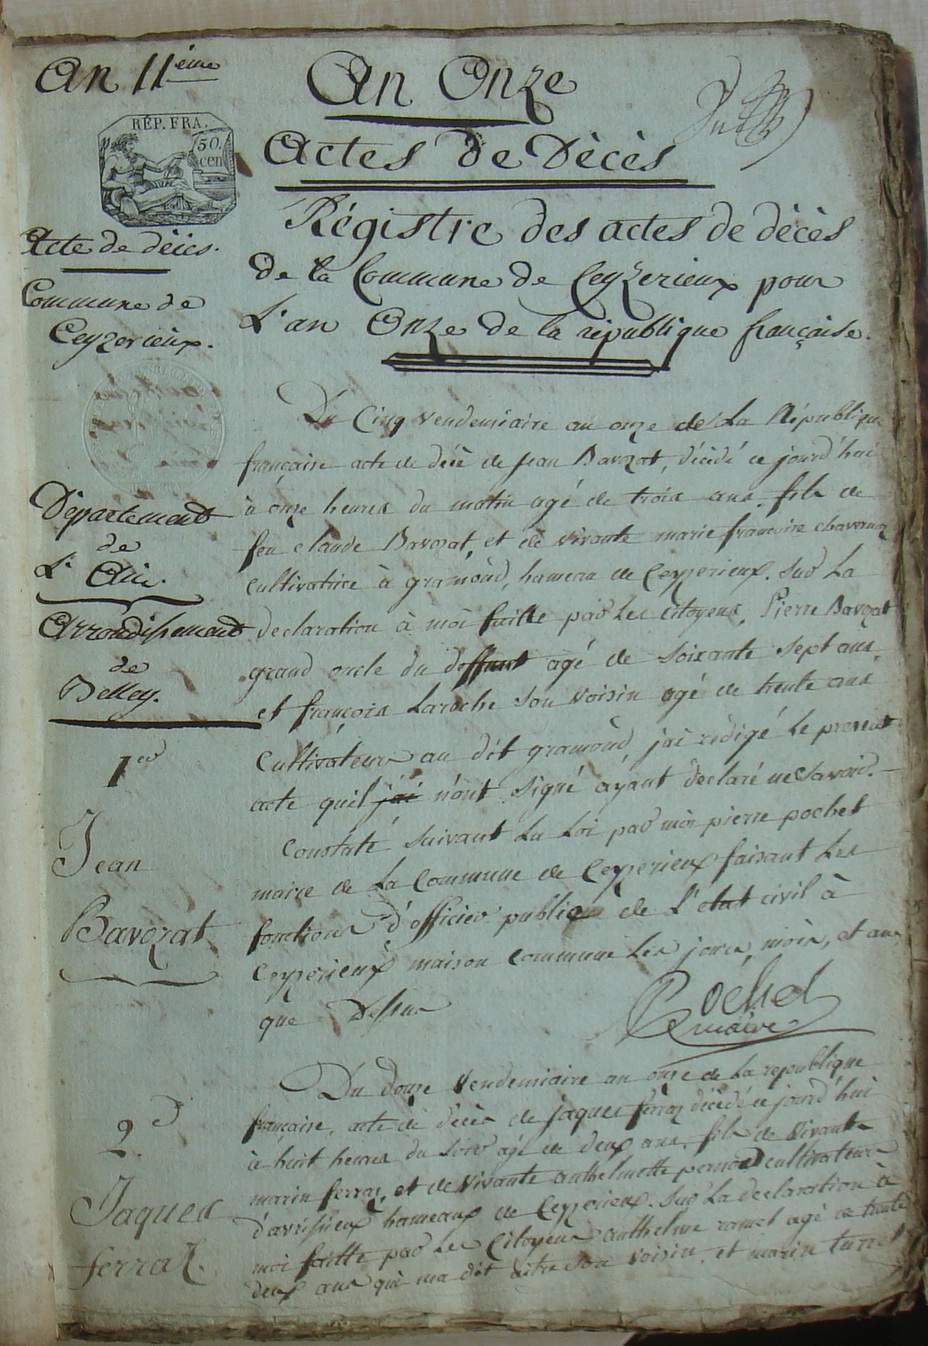 An 11ème
An Onze
RÉP. FRA.
50.
cen
Actes de Dècès
Acte de déces.
Régistre des actes de décès
de la Commune de Ceyzerieux pour
L'an Onze de la république française.
Commune de
Ceyzerieux.
Département
de
L'Ain.
Arrondissement
de
Belley.
Du Cinq vendemiaire an onze de La République
française acte de décè de Jean Bavozat, décédé ce jourd'hui
à onze heures du matin agé de trois ans, fils de
feu claude Bavozat, et de vivante marie françoise
cultivatrice à gramond, hameau de Ceyzerieux. Sur La
declaration à moi faitte par Les Citoyens, Pierre Bavozat
grand oncle du deffunt agé de soixante sept ans,
et françois Laroche son voisin agé de trente ans
Cultivateurs au dit gramond, jai rédigé Le present
acte quil jai n'ont signé ayant declaré ne savoir.
Constaté suivant La Loi par moi pierre pochet
maire de La Commune de Ceyzerieux faisant Les
fonctions d'officier public de L'etat civil à
Ceyzerieux maison commune Les jours, mois, et an
que Dessus
Pochet
maire
1er
Jean
Bavozat
Du Douze Vendemiaire an onze de La republique
francaise, acte de décès de jaques ferraz décédé ce jourd'hui
à huit heures du soir agé de deux ans, fils de vivant
marin ferraz, et de vivante anthelmette pernod cultivateurs
d'avrissieux hameaux de Ceyzerieux. Sur La declaration à
moi faitte par Les Citoyens anthelme ramel agé de trente
deux ans qui ma dit aitre son voisin, et marin
2d
Jaques
ferraz.